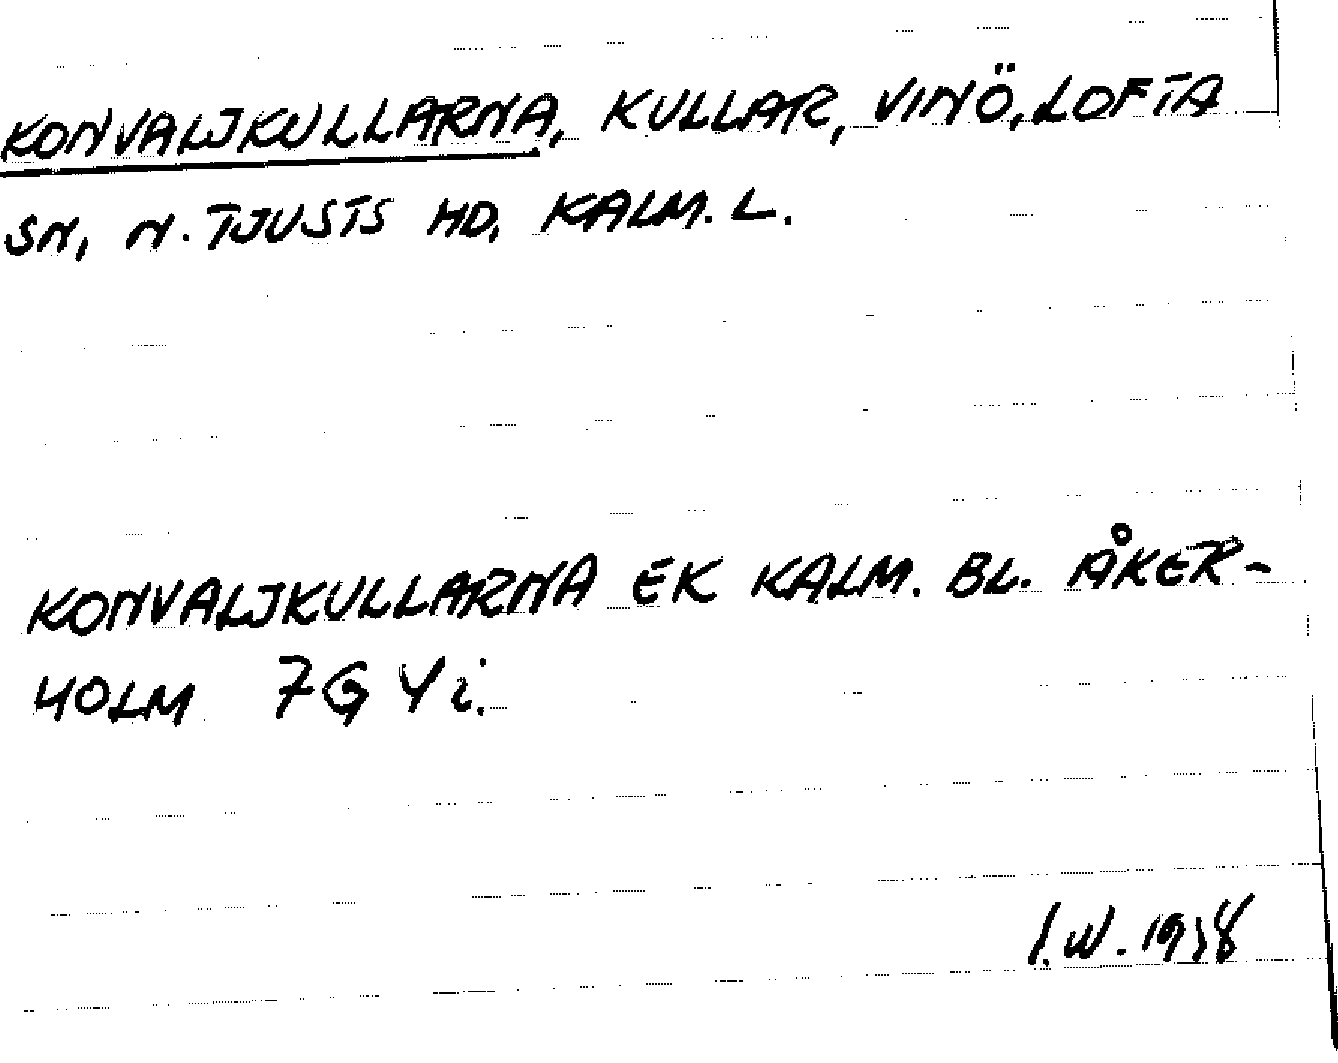 KONVALJKULLARNA, KULLAR, VINÖ, LOFTA
SN, N. TJUSTS HD, KALM. L.
KONVALJKULLARNA EK KALM. BL. ÅKER-
HOLM 7G 4i.
I.W. 1958